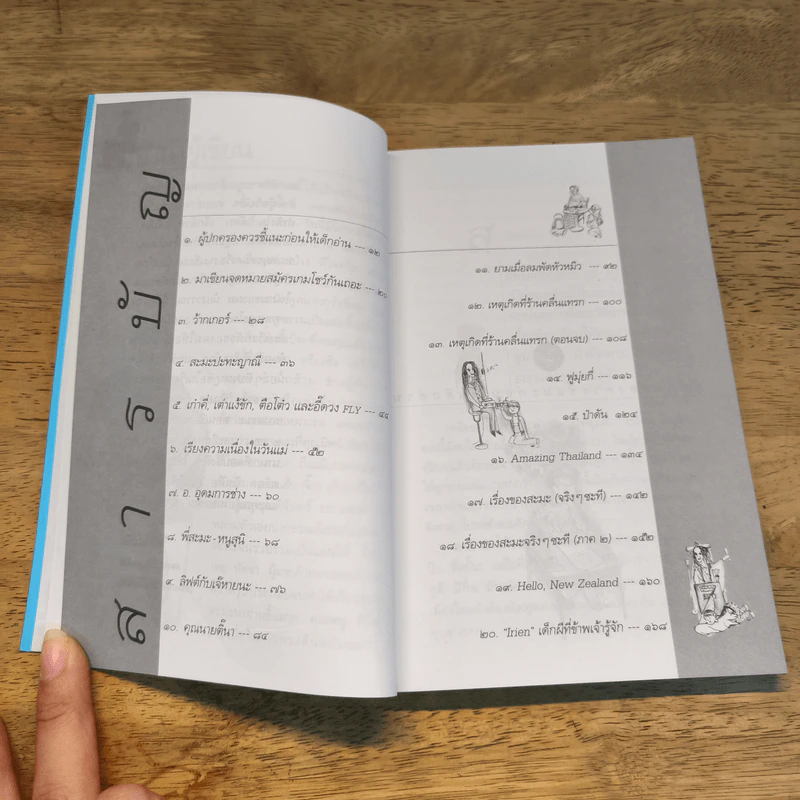 สารบัญ
๑. ผู้ปกครองควรชี้แนะก่อนให้เด็กอ่าน --- ๑๒
๒. มาเขียนจดหมายสมัครเกมโชว์กันเถอะ --- ๒๐
๓. ว้ากเกอร์ --- ๒๘
๔. สะมะปะทะญาณี --- ๓๖
๕. เก๋าคี่, เต๋าแง้ซัก, ตือโต๋ว และอี๊ดวง FLY --- ๔๔
๖. เรียงความเนื่องในวันแม่ --- ๕๒
๗. อ. อุดมการช่าง --- ๖๐
๘. พี่สะมะ-หนูสุนิ --- ๖๘
๙. ลิฟต์กับเจ๊หายนะ --- ๗๖
๑๐. คุณนายติ๊นา --- ๘๔
๑๑. ยามเมื่อลมพัดหัวหมิว --- ๙๒
๑๒. เหตุเกิดที่ร้านคลื่นแทรก --- ๑๐๐
๑๓. เหตุเกิดที่ร้านคลื่นแทรก (ตอนจบ) --- ๑๐๘
๑๔. ฟูมุ่ยกี่ --- ๑๑๖
๑๕. ป๋าดัน ๑๒๔
๑๖. Amazing Thailand --- ๑๓๔
๑๗. เรื่องของสะมะ (จริงๆซะที) --- ๑๔๒
๑๘. เรื่องของสะมะจริงๆซะที (ภาค ๒) --- ๑๕๒
๑๙. Hello, New Zealand --- ๑๖๐
๒๐. "Irien" เด็กผีที่ข้าพเจ้ารู้จัก --- ๑๖๘